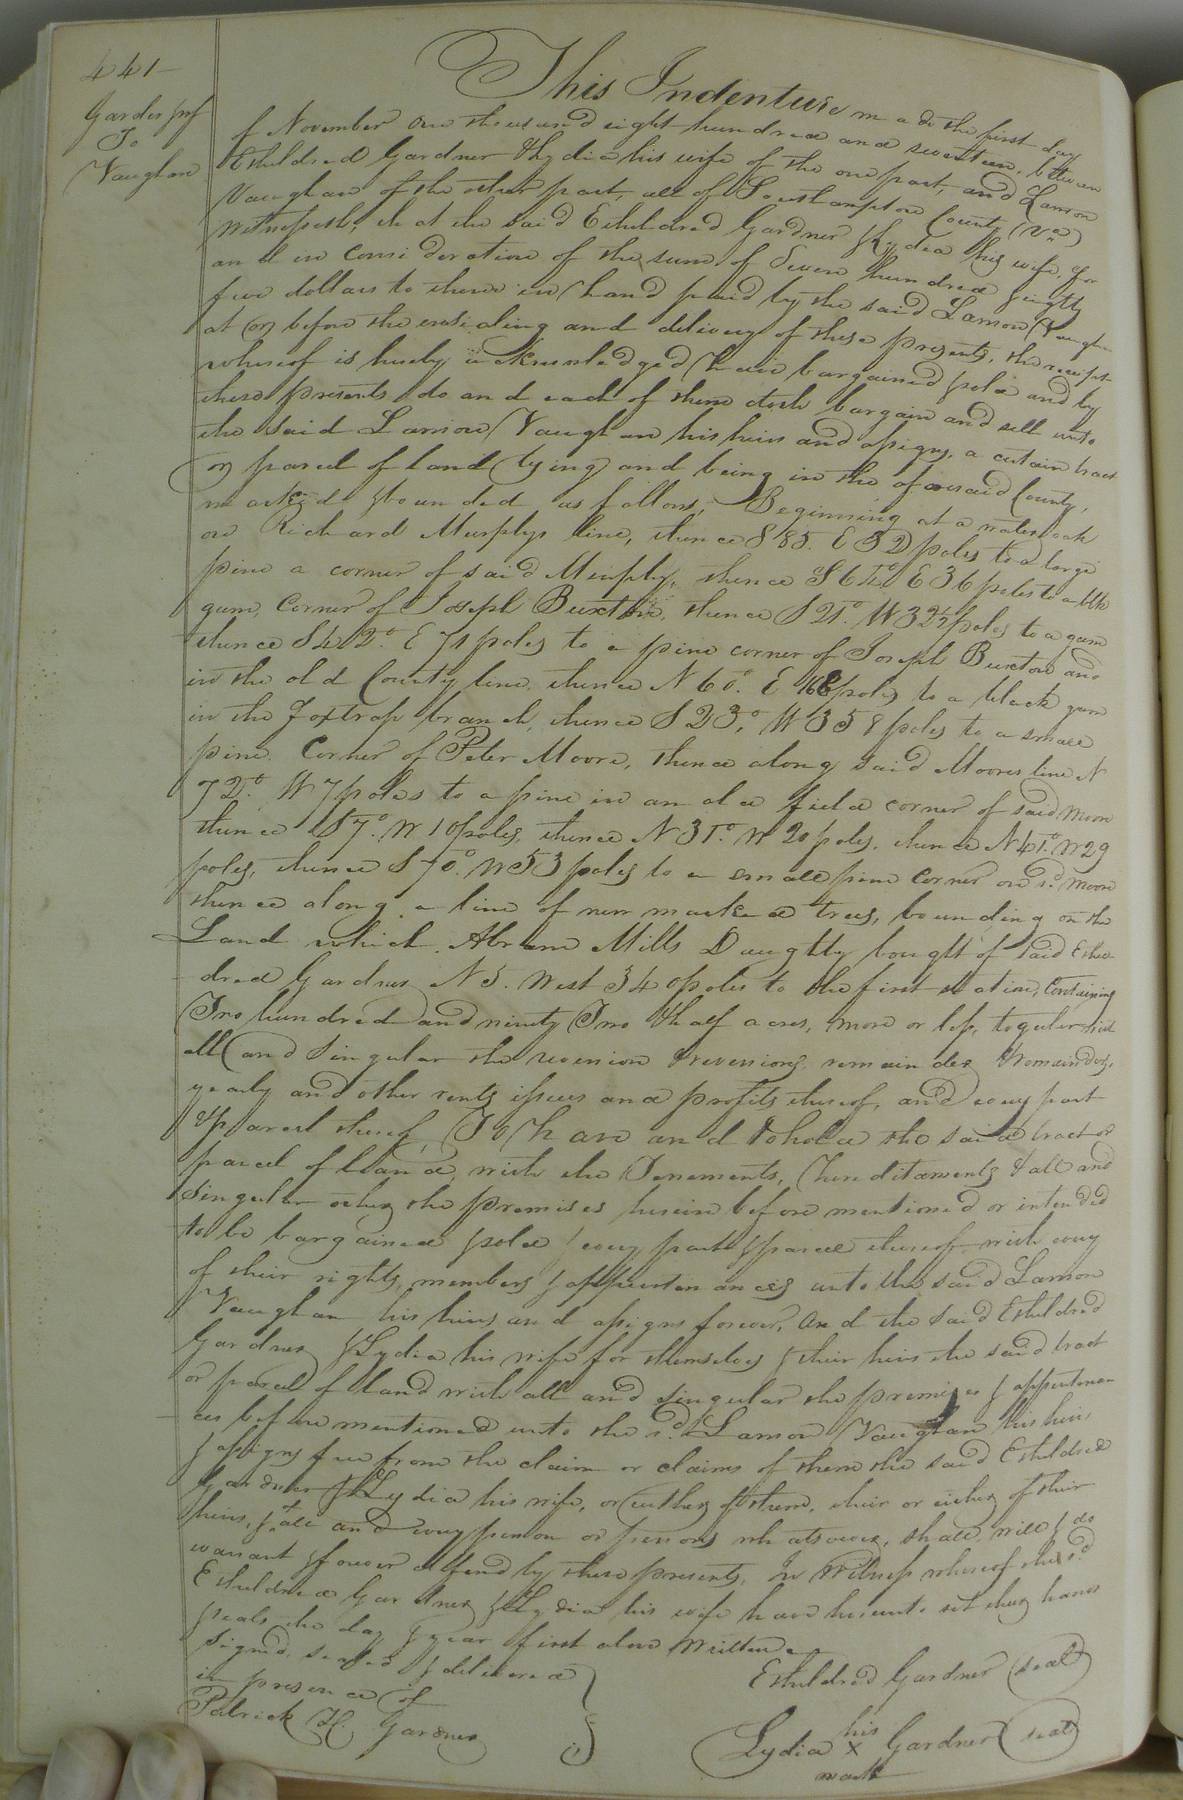 441
Gardner &wf
To
Vaughan
This Indenture made the first day
of November one thousand eight hundred and seventeen, between
Etheldred Gardner & Lydia his wife of the one part, and Lamon
Vaughan of the other part, all of Southampton County (Va)
Witnesseth, that the said Etheldred Gardner & Lydia his wife, for
and in consideration of the sum of Seven hundred & eighty
five dollars to them in hand paid by the said Lamon Vaughan
at or before the ensealing and delivery of these presents, the receipt
whereof is hereby acknowledged have bargained & sold and by
these presents do and each of them doth bargain and sell unto
the said Lamon Vaughan his heirs and assigns, a certain tract
or parcel of land lying and being in the aforesaid County,
marked & bounded as follows; Beginning at a water oak
on Richard Murphys line, thence S 85. E 52 poles to a large
pine a corner of said Murphy, thence S 64° E 36 poles to a blk
gum, Corner of Joseph Buxton, thence S 21°. W 32½ poles to a gum
thence S 42°. E 71 poles to a pine corner of Joseph Buxton and
in the old County line, thence N 60°. E 168 poles to a black gum
in the Foxtrap branch, thence S 23°, W 358 poles to a small
pine Corner of Peter Moore, thence along said Moores line N
72°. W 7 poles to a pine in an old field corner of said Moore
thence S 7°. W 10 poles, thence N 31°. W 20 poles, thence N 41°. W 29
poles, thence S 70°. W 53 poles to a small pine Corner on sd. Moore
thence along a line of new marked trees, bounding on the
Land which Abram Mills Daughtry bought of said Ethel
dred Gardner N 5. West 340 poles to the first station, Containing
Two hundred and ninety Two & half acres, more or less, together with
all and singular the reversion & reversions, remainder & remainders,
yearly and other rents issues and profits thereof, and every part
& parcel thereof, To have and to hold the said tract or
parcel of land, with the Tenements, Hereditaments & all and
Singular other the premises herein before mentioned or intended
to be bargained & sold & every part & parcel thereof with every
of their rights, members & appurtenances unto the said Lamon
Vaughan his heirs and assigns forever, And the said Etheldred
Gardner & Lydia his wife for themselves & their heirs the said tract
or parcel of land with all and singular the premises & appurtenan
ces before mentioned unto the sd. Lamon Vaughan his heirs
& assigns free from the claim or claims of them the said Etheldred
Gardner & Lydia his wife, or either of them, their or either of their
heirs, & all and every person or persons whatsoever, shall, will & do
warrant & forever defend by these presents, In Witness whereof the sd.
Etheldred Gardner & Lydia his wife have hereunto set their hands
& seals the day & year first above written
Signed, sealed & delivered
in presence of
Patrick H. Gardner
Etheldred Gardner (seal)
Lydia his x mark Gardner (seal)